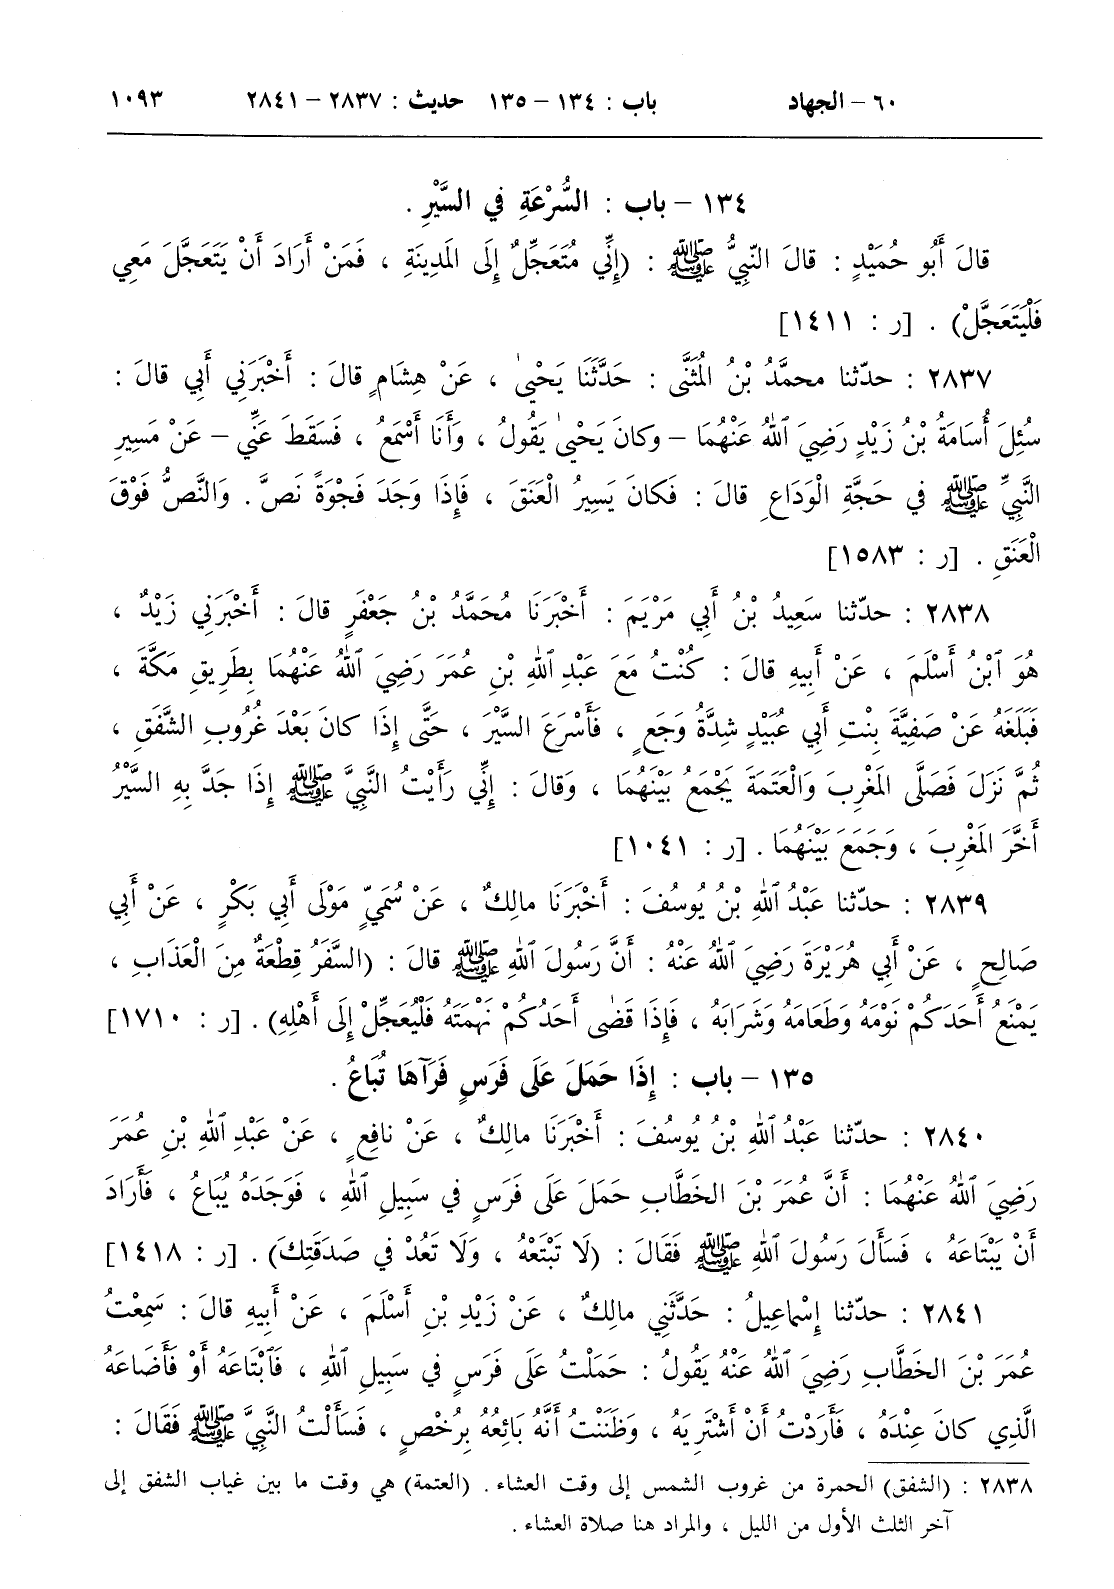 ٦٠ – الجهاد باب : ١٣٤ – ١٣٥ حديث : ٢٨٣٧ – ٢٨٤١ ١٠٩٣
١٣٤ – باب : السُّرْعَةِ في السَّيْرِ .
قالَ أَبُو حُمَيْدٍ : قالَ النَّبِيُّ ﷺ : (إِنِّي مُتَعَجِّلٌ إِلَى المَدِينَةِ ، فَمَنْ أَرَادَ أَنْ يَتَعَجَّلَ مَعِي
فَلْيَتَعَجَّلْ) . [ر : ١٤١١]
٢٨٣٧ : حدّثنا محمَّدُ بْنُ المُثَنَّى : حَدَّثَنَا يَحْيىٰ ، عَنْ هِشَامٍ قالَ : أَخْبَرَنِي أَبِي قالَ :
سُئِلَ أُسَامَةُ بْنُ زَيْدٍ رَضِيَ ٱللهُ عَنْهُمَا – وكانَ يَحْيىٰ يَقُولُ ، وَأَنَا أَسْمَعُ ، فَسَقَطَ عَنِّي – عَنْ مَسِيرِ
النَّبِيِّ ﷺ في حَجَّةِ الْوَدَاعِ قالَ : فَكانَ يَسِيرُ الْعَنَقَ ، فَإِذَا وَجَدَ فَجْوَةً نَصَّ . وَالنَّصُّ فَوْقَ
الْعَنَقِ . [ر : ١٥٨٣]
٢٨٣٨ : حدّثنا سَعِيدُ بْنُ أَبِي مَرْيَمَ : أَخْبَرَنَا مُحَمَّدُ بْنُ جَعْفَرٍ قالَ : أَخْبَرَنِي زَيْدٌ ،
هُوَ ٱبْنُ أَسْلَمَ ، عَنْ أَبِيهِ قالَ : كُنْتُ مَعَ عَبْدِ ٱللهِ بْنِ عُمَرَ رَضِيَ ٱللهُ عَنْهُمَا بِطَرِيقِ مَكَّةَ ،
فَبَلَغَهُ عَنْ صَفِيَّةَ بِنْتِ أَبِي عُبَيْدٍ شِدَّةُ وَجَعٍ ، فَأَسْرَعَ السَّيْرَ ، حَتَّى إِذَا كانَ بَعْدَ غُرُوبِ الشَّفَقِ ،
ثُمَّ نَزَلَ فَصَلَّى المَغْرِبَ وَالْعَتَمَةَ يَجْمَعُ بَيْنَهُمَا ، وَقالَ : إِنِّي رَأَيْتُ النَّبِيَّ ﷺ إِذَا جَدَّ بِهِ السَّيْرُ
أَخَّرَ المَغْرِبَ ، وَجَمَعَ بَيْنَهُمَا . [ر : ١٠٤١]
٢٨٣٩ : حدّثنا عَبْدُ ٱللهِ بْنُ يُوسُفَ : أَخْبَرَنَا مالِكٌ ، عَنْ سُمَيٍّ مَوْلَى أَبِي بَكْرٍ ، عَنْ أَبِي
صَالِحٍ ، عَنْ أَبِي هُرَيْرَةَ رَضِيَ ٱللهُ عَنْهُ : أَنَّ رَسُولَ ٱللهِ ﷺ قالَ : (السَّفَرُ قِطْعَةٌ مِنَ الْعَذَابِ ،
يَمْنَعُ أَحَدَكُمْ نَوْمَهُ وَطَعَامَهُ وَشَرَابَهُ ، فَإِذَا قَضٰى أَحَدُكُمْ نَهْمَتَهُ فَلْيُعَجِّلْ إِلَى أَهْلِهِ) . [ر : ١٧١٠]
١٣٥ – باب : إِذَا حَمَلَ عَلَى فَرَسٍ فَرَآهَا تُبَاعُ .
٢٨٤٠ : حدّثنا عَبْدُ ٱللهِ بْنُ يُوسُفَ : أَخْبَرَنَا مالِكٌ ، عَنْ نافِعٍ ، عَنْ عَبْدِ ٱللهِ بْنِ عُمَرَ
رَضِيَ ٱللهُ عَنْهُمَا : أَنَّ عُمَرَ بْنَ الخَطَّابِ حَمَلَ عَلَى فَرَسٍ في سَبِيلِ ٱللهِ ، فَوَجَدَهُ يُبَاعُ ، فَأَرَادَ
أَنْ يَبْتَاعَهُ ، فَسَأَلَ رَسُولَ ٱللهِ ﷺ فَقَالَ : (لَا تَبْتَعْهُ ، وَلَا تَعُدْ في صَدَقَتِكَ) . [ر : ١٤١٨]
٢٨٤١ : حدّثنا إِسْماعِيلُ : حَدَّثَنِي مالِكٌ ، عَنْ زَيْدِ بْنِ أَسْلَمَ ، عَنْ أَبِيهِ قالَ : سَمِعْتُ
عُمَرَ بْنَ الخَطَّابِ رَضِيَ ٱللهُ عَنْهُ يَقُولُ : حَمَلْتُ عَلَى فَرَسٍ في سَبِيلِ ٱللهِ ، فَٱبْتَاعَهُ أَوْ فَأَضَاعَهُ
الَّذِي كانَ عِنْدَهُ ، فَأَرَدْتُ أَنْ أَشْتَرِيَهُ ، وَظَنَنْتُ أَنَّهُ بَائِعُهُ بِرُخْصٍ ، فَسَأَلْتُ النَّبِيَّ ﷺ فَقَالَ :
٢٨٣٨ : (الشفق) الحمرة من غروب الشمس إلى وقت العشاء . (العتمة) هي وقت ما بين غياب الشفق إلى
آخر الثلث الأول من الليل ، والمراد هنا صلاة العشاء .